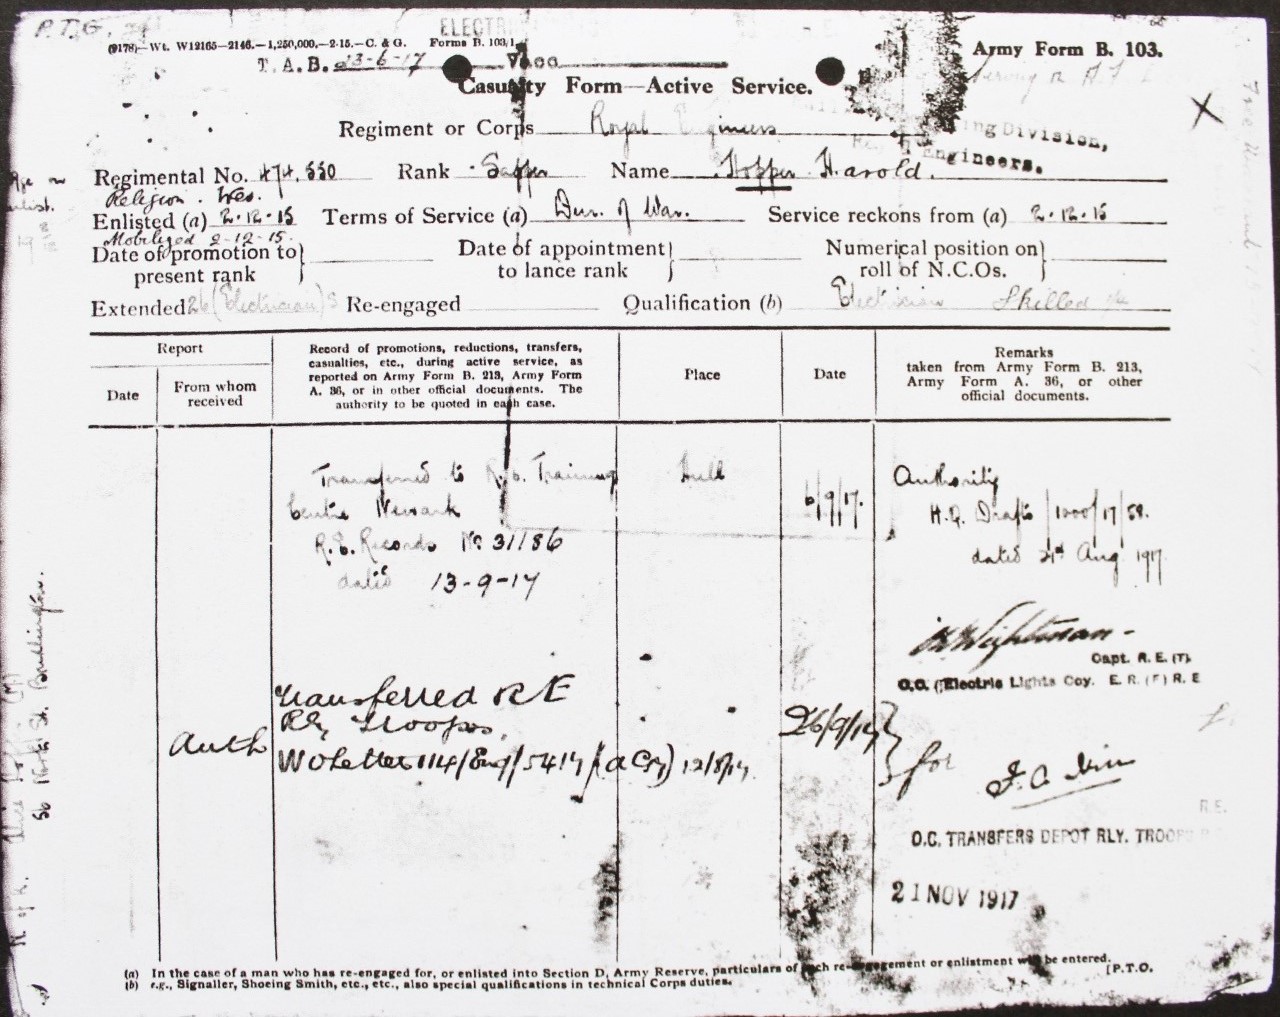 P.T.G.
ELECTRI
(9178)—Wt. W12165—2146.—1,250,000.—2-15.—C. & G. Forms B. 103/1
Army Form B. 103.
T. A. B. 23-6-17 Vacc
Casualty Form—Active Service.
Regiment or Corps Royal Engineers
ing Division,
Engineers.
Regimental No. 474,550 Rank Sapper Name Hopper Harold.
Religion. Wes.
Enlisted (a) 2.12.15 Terms of Service (a) Dur. of War. Service reckons from (a) 2.12.15
Mobilized 2-12-15.
Date of promotion to present rank
Date of appointment to lance rank
Numerical position on roll of N.C.Os.
Extended 26 (Electrician) Re-engaged Qualification (b) Electrician Skilled
Report
Date
From whom received
Record of promotions, reductions, transfers, casualties, etc., during active service, as reported on Army Form B. 213, Army Form A. 36, or in other official documents. The authority to be quoted in each case.
Place
Date
Remarks
taken from Army Form B. 213, Army Form A. 36, or other official documents.
Transferred to R.E. Training Hull
Centre Newark 6/9/17.
R.E. Records No 31186
dated 13-9-17
Authority
H.Q. Drafts 1000/17/58.
dated 21st Aug 1917.
Wightman
Capt. R. E. (T).
O.C. (Electric Lights Coy. E. R. (F) R. E
Transferred R E
Rly Troops,
Auth WO Letter 114/Eng/5417/(a Cy) 12/8/17.
26/9/17
for
O.C. TRANSFERS DEPOT RLY. TROOPS R.E.
21 NOV 1917
(a) In the case of a man who has re-engaged for, or enlisted into Section D, Army Reserve, particulars of such re-engagement or enlistment will be entered.
(b) e.g., Signaller, Shoeing Smith, etc., etc., also special qualifications in technical Corps duties.
[P.T.O.
N of K.
St. Bridlington.